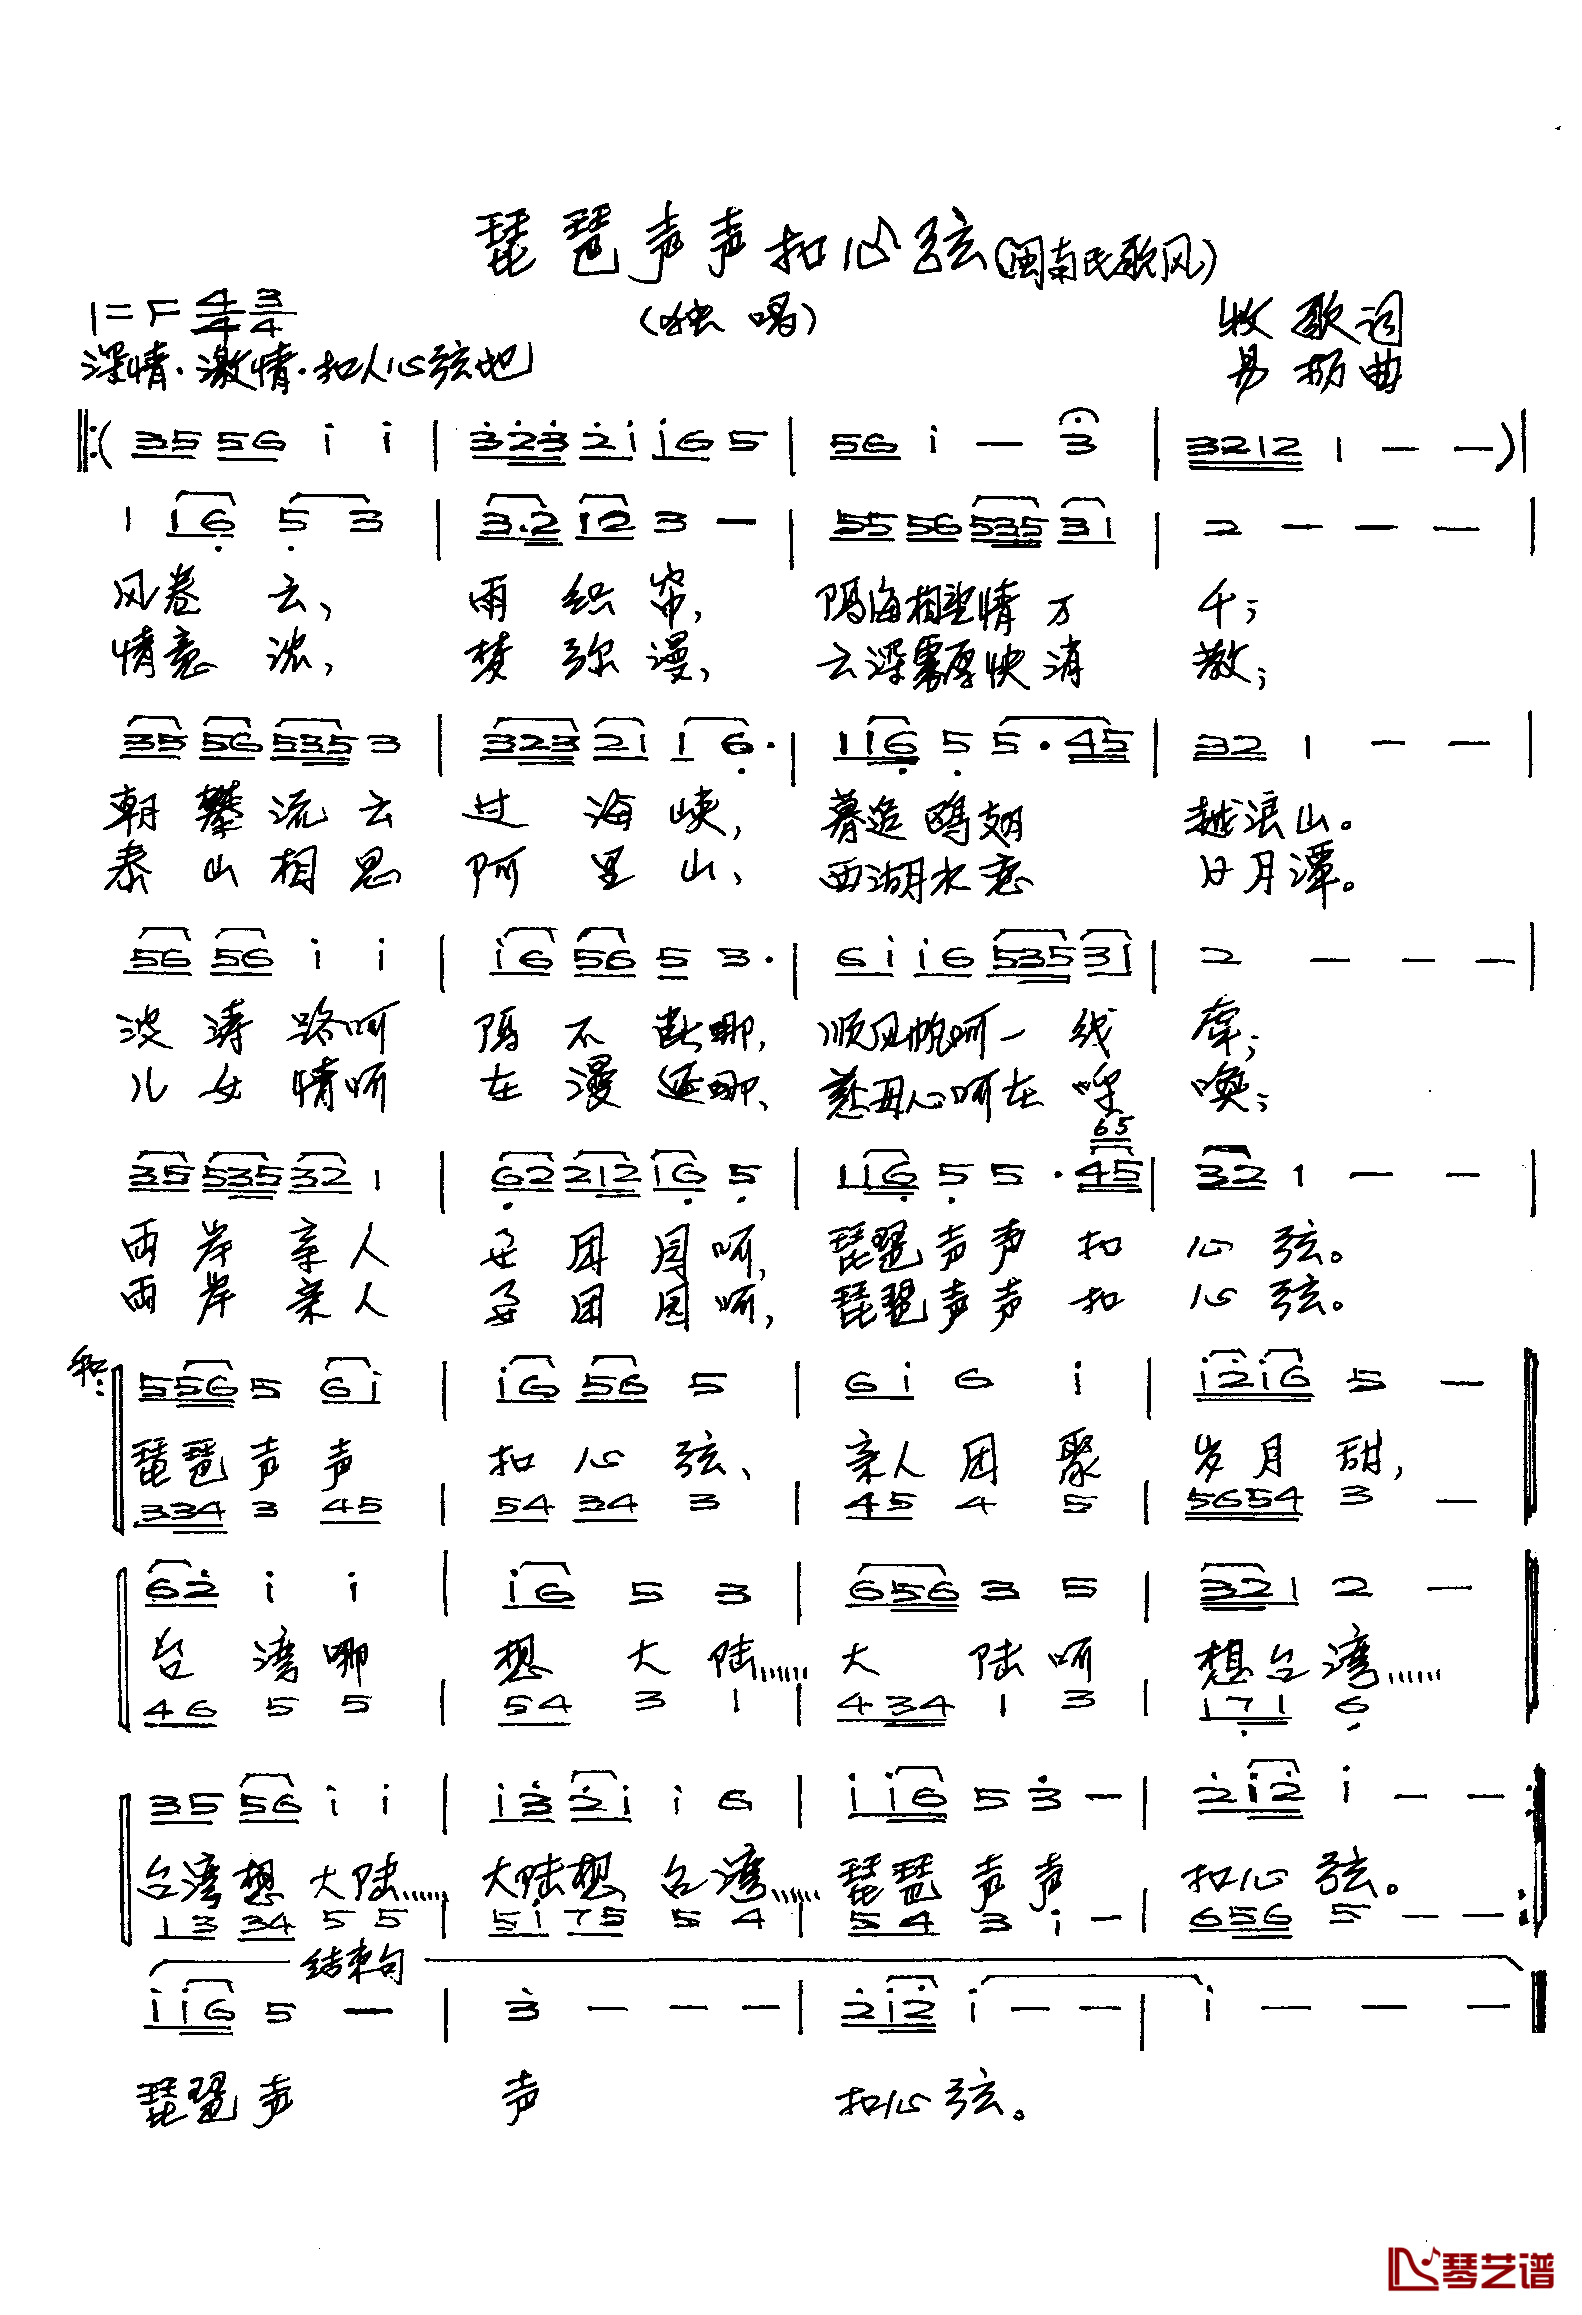 琵琶声声扣心弦(闽南民歌风)
1=F 4/4 3/4 (独唱) 牧歌词
深情·激情·扣人心弦地 易柝曲
‖:( 35 56 i i | 323 2i i65 | 56 i — 3 | 3212 1 — — )|
1 16 5 3 | 3.2 12 3 — | 55 56 535 31 | 2 — — — |
风卷云, 雨织帘, 隔海相望情万千;
情意浓, 梦弥漫, 云深雾厚快消散;
35 56 535 3 | 323 21 1 6. | 116 5 5. 45 | 32 1 — — |
朝攀流云过海峡, 暮造鸥翅越浪山。
泰山相思阿里山、 西湖水恋日月潭。
56 56 i i | i6 56 5 3. | 6i i6 535 31 | 2 — — — |
波涛路呵隔不断哪, 顺风帆呵一线牵;
儿女情呵在漫延哪、 慈母心呵在呼唤;
65
35 535 32 1 | 62 212 16 5 | 116 5 5. 45 | 32 1 — — |
两岸亲人要团圆呵, 琵琶声声扣心弦。
两岸亲人要团圆呵, 琵琶声声扣心弦。
556 5 6i | i6 56 5 | 6i 6 i | i2i6 5 —
琵琶声声扣心弦、 亲人团聚岁月甜,
334 3 45 | 54 34 3 | 45 4 5 | 5654 3 —
62 i i | i6 5 3 | 656 3 5 | 321 2 —
台湾哪想大陆……大陆呵想台湾……
46 5 5 | 54 3 1 | 434 1 3 | 171 6
35 56 i i | i3 2i i 6 | ii6 5 3 — | 2i2 i — — :‖
台湾想大陆……大陆想台湾……琵琶声声扣心弦。
13 34 5 5 | 5i 75 5 4 | 54 3 i — | 656 5 — — :‖
结束句
ii6 5 — | 3 — — — | 2i2 i — — | i — — — ‖
琵琶声声扣心弦。
琴艺谱